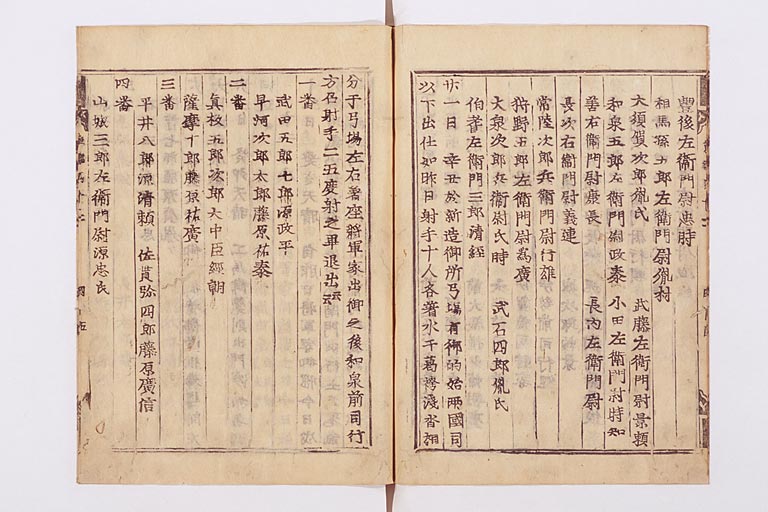 豐後左衛門尉忠時
相馬孫五郎左衛門尉胤村
大須賀次郎胤氏 武藤左衛門尉景頼
和泉五郎左衛門尉政泰 小田左衛門尉時知
善右衛門尉康長 長内左衛門尉
長次右衛門尉義連
常陸次郎兵衛門尉行雄
狩野五郎左衛門尉為廣
大泉次郎兵衛尉氏時 武石四郎胤氏
伯耆左衛門三郎清経
廿一日 辛丑於新造御所弓場有御的始兩國司
以下出仕如昨日射手十人各著水干葛袴淺沓相
分于弓場左右著座將軍家出御之後和泉前司行
方召射手二五度射之畢退出云云
一番
武田五郎七郎源政平
早河次郎太郎藤原祐泰
二番
真板五郎次郎大中臣經朝
薩摩十郎藤原祐廣
三番
平井八郎源清頼 佐貫弥四郎藤原廣信
四番
山城三郎左衛門尉源忠氏